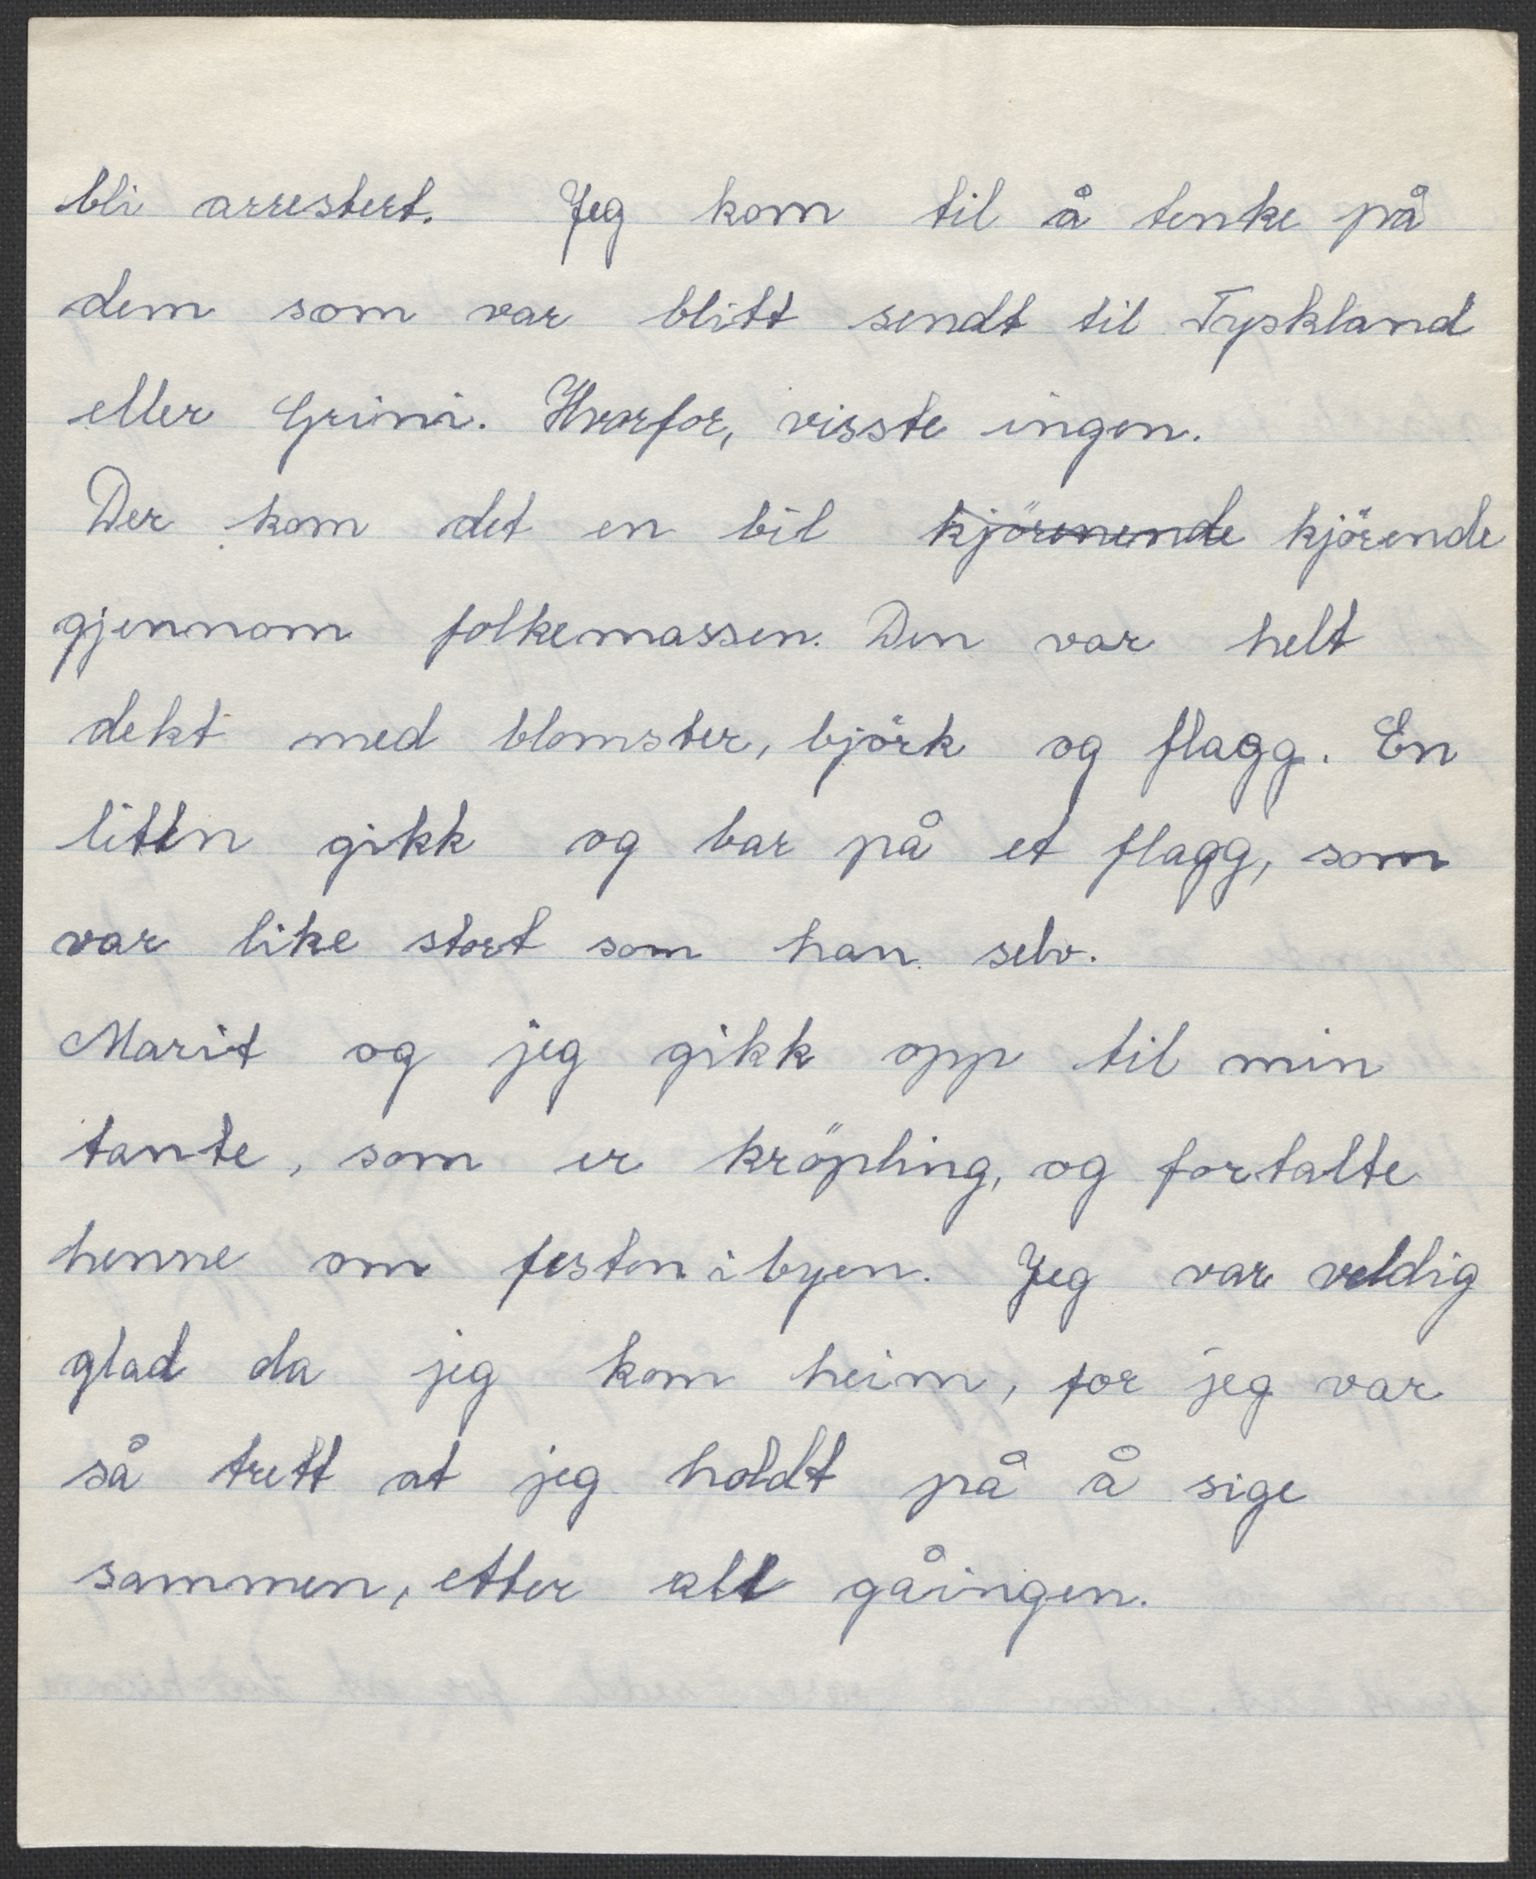 bli arrestert. Jeg kom til å tenke på
dem som var blitt sendt til Tyskland
eller Grini. Hvorfor, visste ingen.
Der kom det en bil kjörenende kjörende
gjennom folkemassen. Den var helt
dekt med blomster, björk og flagg. En
liten gikk og bar på et flagg, som
var like stort som han selv.
Marit og jeg gikk opp til min
tante, som er kröpling, og fortalte
henne om festen i byen. Jeg var veldig
glad da jeg kom heim, for jeg var
så trett at jeg holdt på å sige
sammen, etter all gåingen.